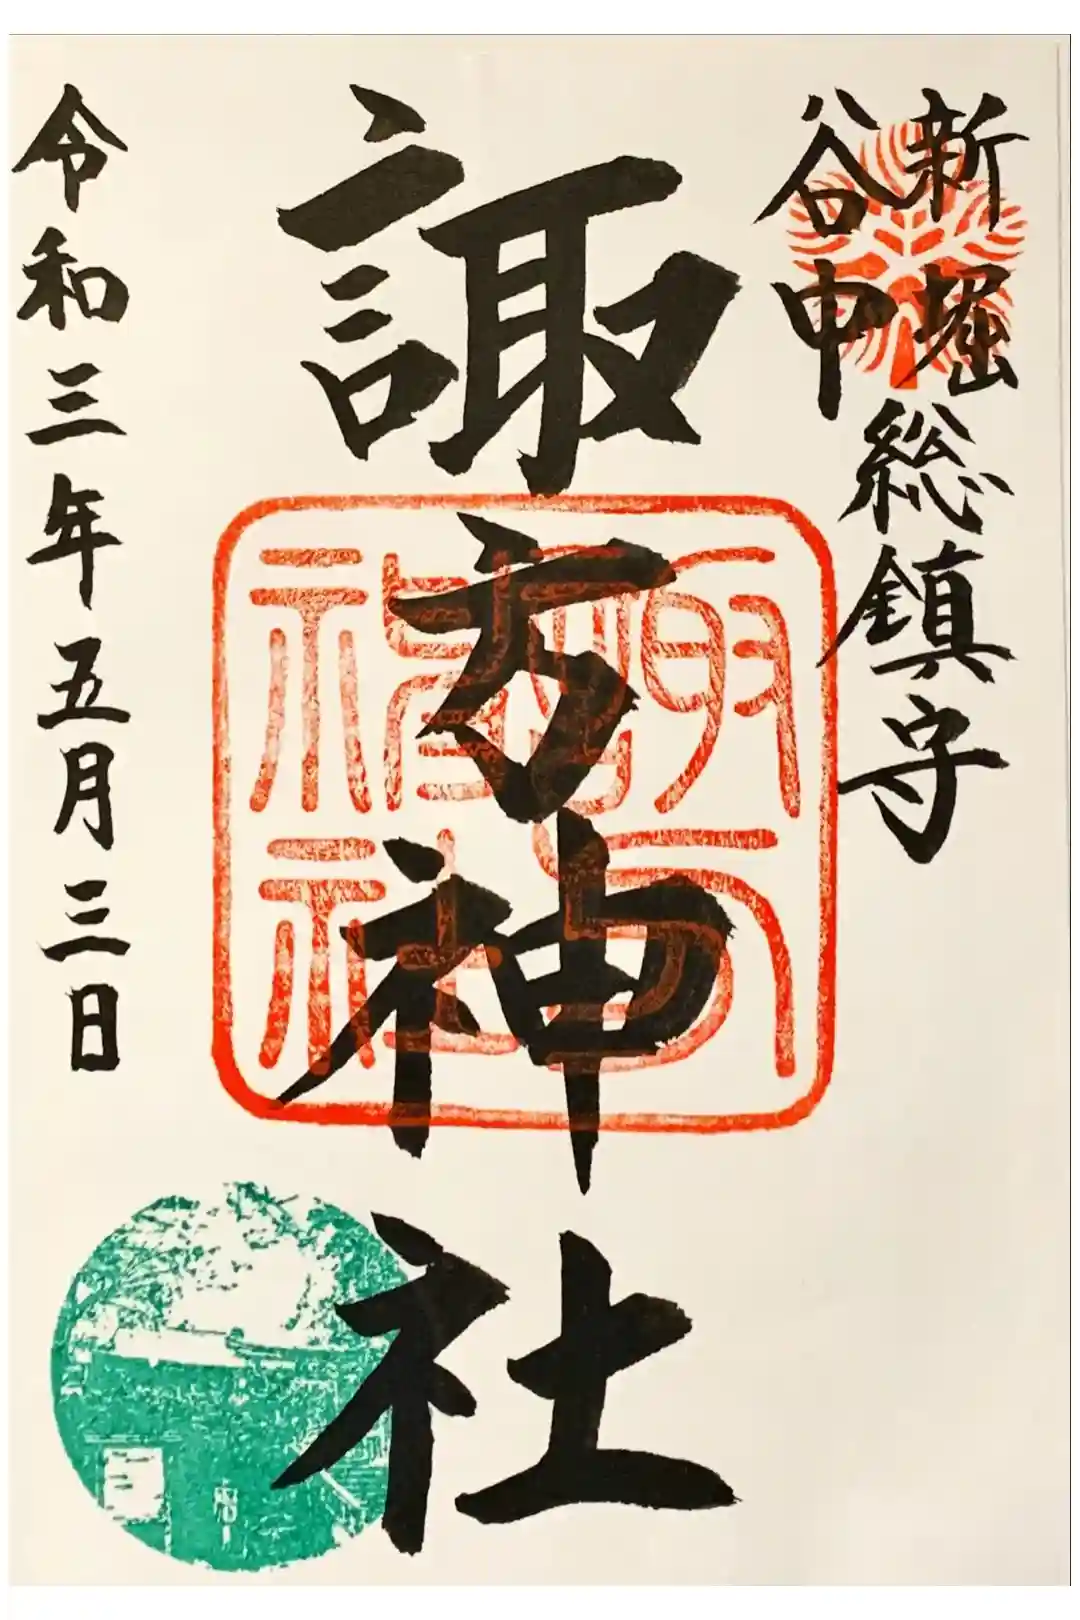 新堀
谷中
総鎮守
諏方神社
諏方
神社
令和三年五月三日